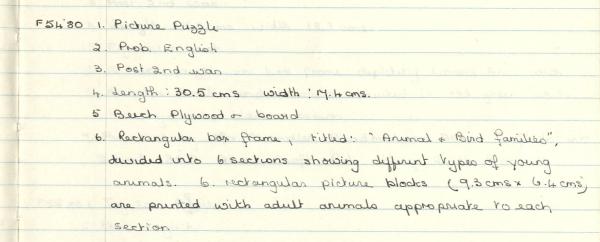 F54'80 1. Picture Puzzle
2. Prob. English
3. Post 2nd war
4. Length : 30.5 cms width : 17.4 cms.
5 Beech Plywood & board
6. Rectangular box frame, titled: "Animal & Bird families",
divided into 6 sections showing different types of young
animals. 6. rectangular picture blocks (9.3 cms x 6.4 cms)
are printed with adult animals appropriate to each
section.